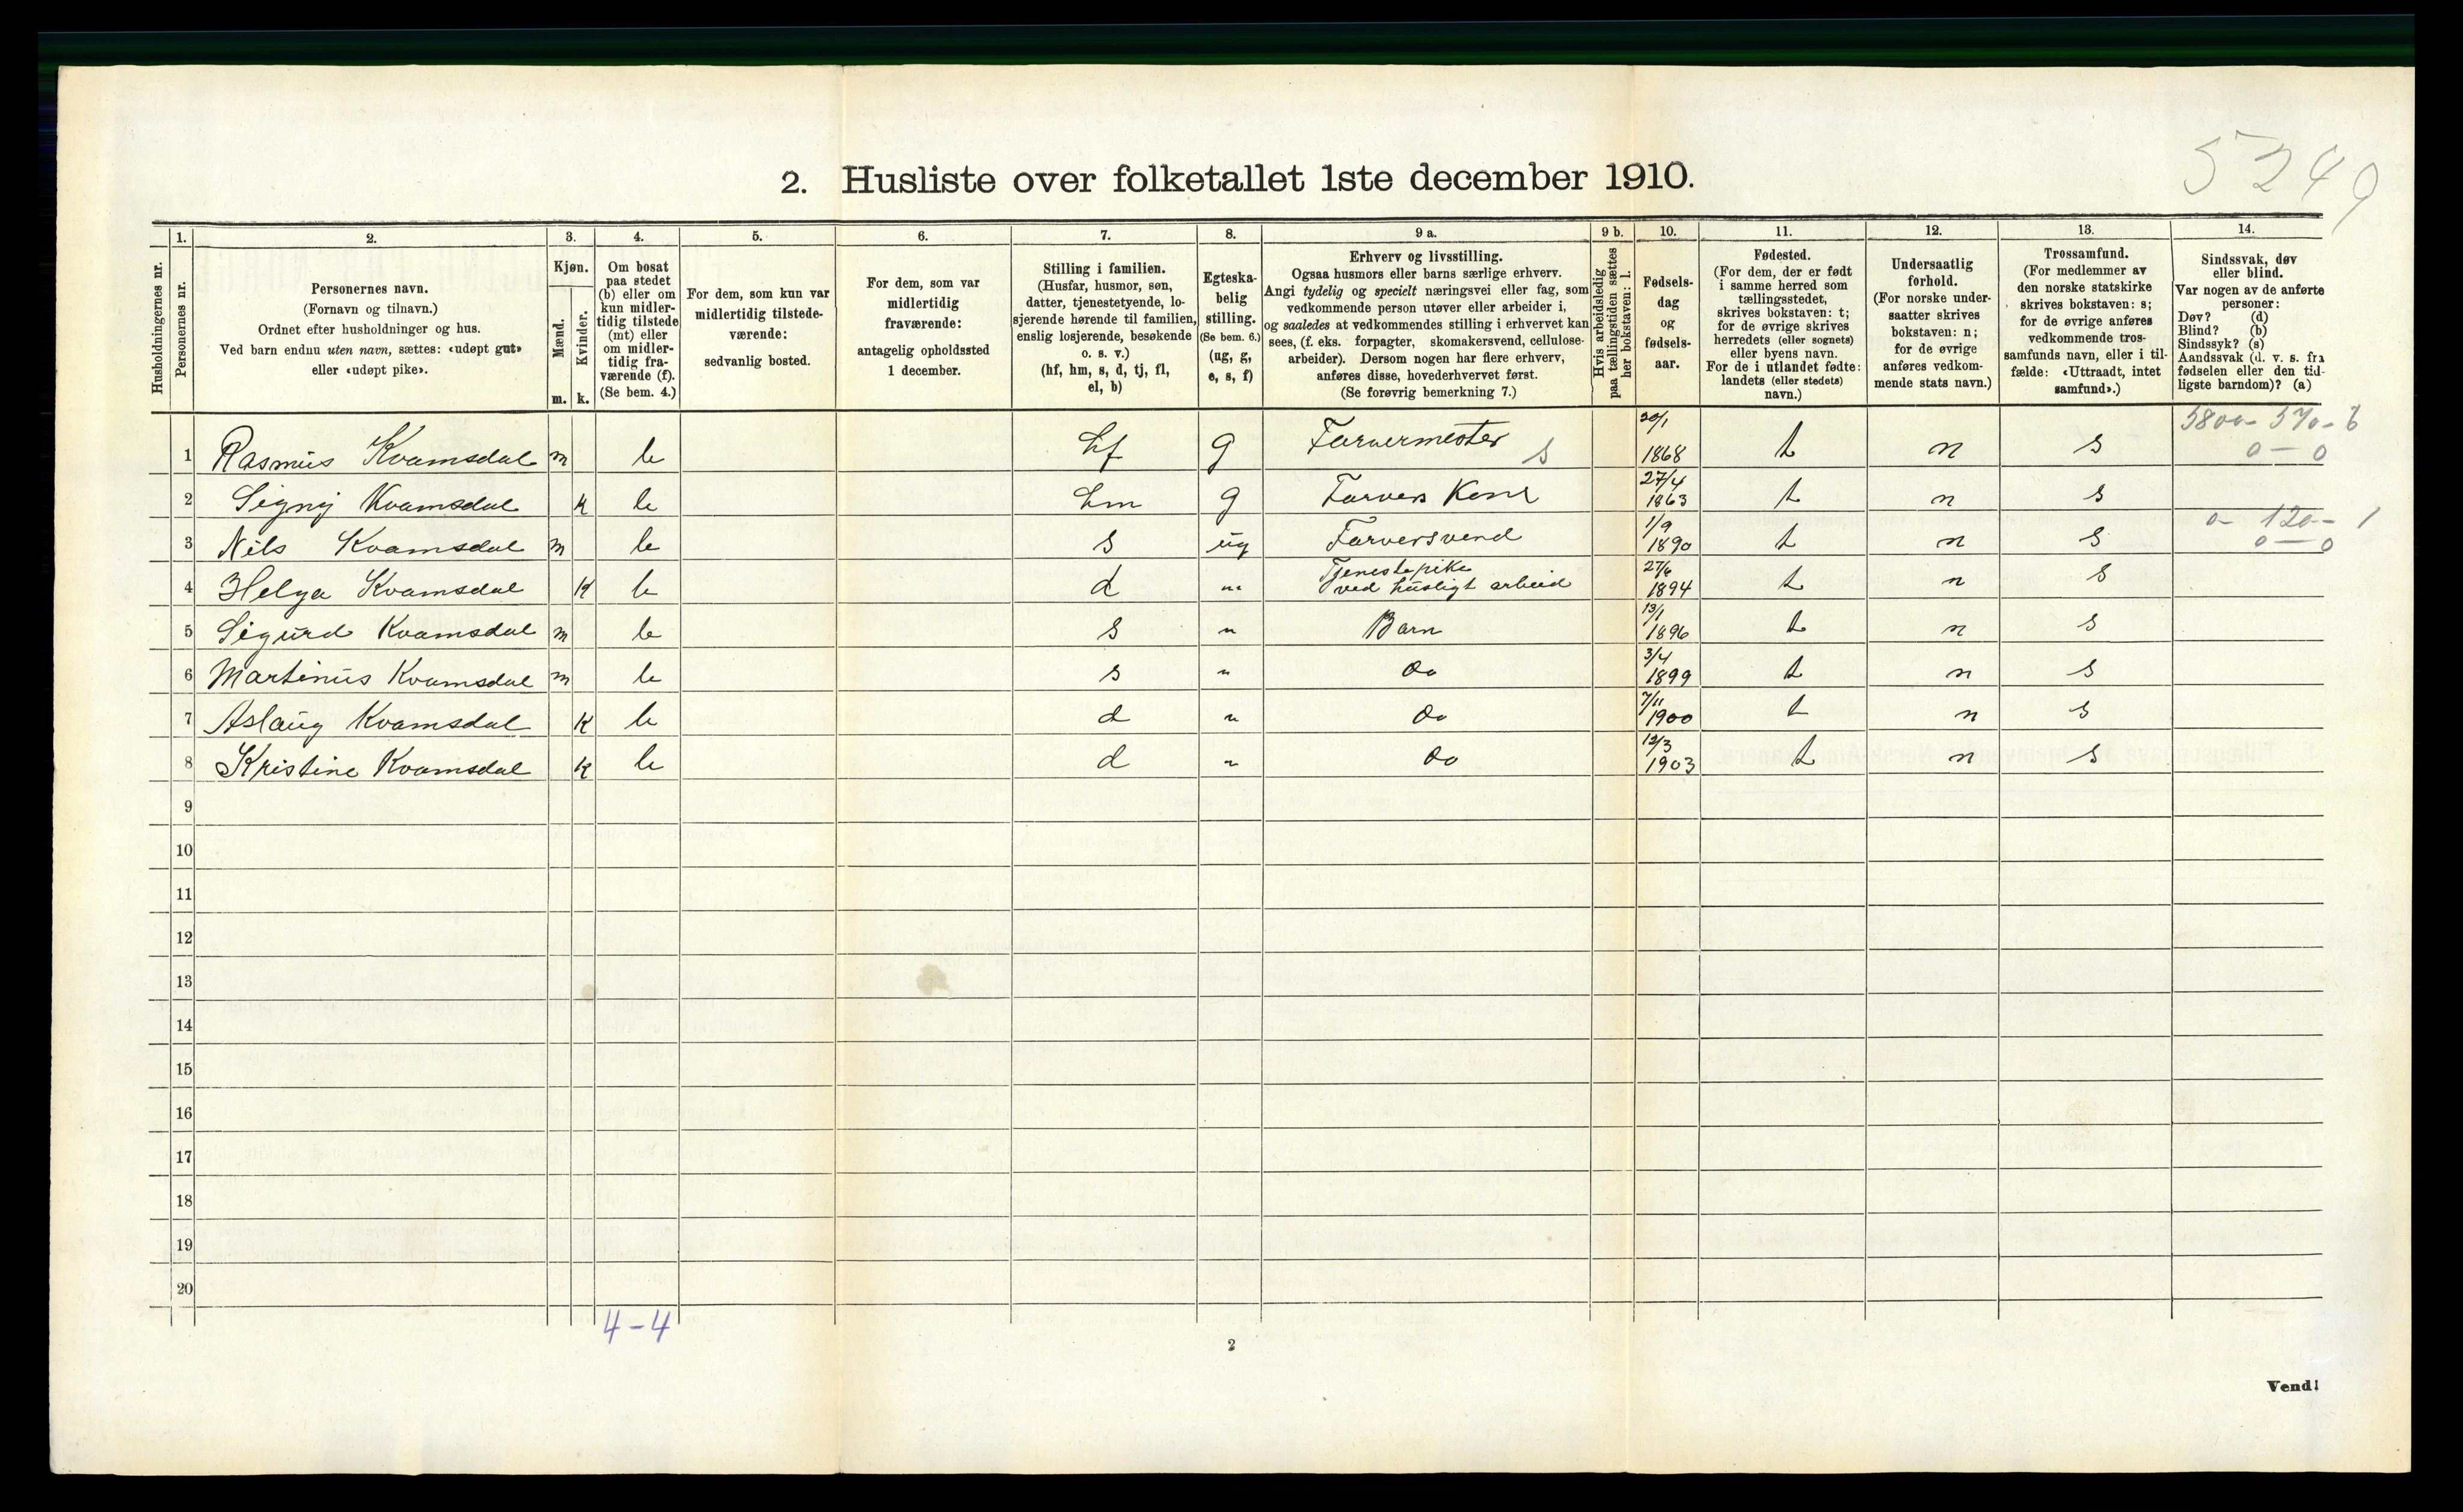 5249
2. Husliste over folketallet 1ste december 1910.
Husholdningernes nr.
1. Personernes nr.
2. Personernes navn.
(Fornavn og tilnavn.)
Ordnet efter husholdninger og hus.
Ved barn endnu uten navn, sættes: «udøpt gut»
eller «udøpt pike».
3. Kjøn.
Mænd. m.
Kvinder. k.
4. Om bosat
paa stedet
(b) eller om
kun midler-
tidig tilstede
(mt) eller
om midler-
tidig fra-
værende (f).
(Se bem. 4.)
5. For dem, som kun var
midlertidig tilstede-
værende:
sedvanlig bosted.
6. For dem, som var
midlertidig
fraværende:
antagelig opholdssted
1 december.
7. Stilling i familien.
(Husfar, husmor, søn,
datter, tjenestetyende, lo-
sjerende hørende til familien,
enslig losjerende, besøkende
o. s. v.)
(hf, hm, s, d, tj, fl,
el, b)
8. Egteska-
belig
stilling.
(Se bem. 6.)
(ug, g,
e, s, f)
9 a. Erhverv og livsstilling.
Ogsaa husmors eller barns særlige erhverv.
Angi tydelig og specielt næringsvei eller fag, som
vedkommende person utøver eller arbeider i,
og saaledes at vedkommendes stilling i erhvervet kan
sees, (f. eks. forpagter, skomakersvend, cellulose-
arbeider). Dersom nogen har flere erhverv,
anføres disse, hovederhvervet først.
(Se forøvrig bemerkning 7.)
9 b. Hvis arbeidsledig
paa tællingstiden sættes
her bokstaven: l.
10. Fødsels-
dag
og
fødsels-
aar.
11. Fødested.
(For dem, der er født
i samme herred som
tællingsstedet,
skrives bokstaven: t;
for de øvrige skrives
herredets (eller sognets)
eller byens navn.
For de i utlandet fødte:
landets (eller stedets)
navn.)
12. Undersaatlig
forhold.
(For norske under-
saatter skrives
bokstaven: n;
for de øvrige
anføres vedkom-
mende stats navn.)
13. Trossamfund.
(For medlemmer av
den norske statskirke
skrives bokstaven: s;
for de øvrige anføres
vedkommende tros-
samfunds navn, eller i til-
fælde: «Uttraadt, intet
samfund».)
14. Sindssvak, døv
eller blind.
Var nogen av de anførte
personer:
Døv? (d)
Blind? (b)
Sindssyk? (s)
Aandssvak (d. v. s. fra
fødselen eller den tid-
ligste barndom)? (a)
1 Rasmus Kvamsdal m b hf g Farvermester s 20/1 1868 t n s 3800 - 370 - 6 0 — 0
2 Signy Kvamsdal k b hm g Farvers Kone 27/4 1863 t n s
3 Nils Kvamsdal m b s ug Farversvend 1/9 1890 t n s 0 - 120 - 1 0 — 0
4 Helga Kvamsdal k b d " Tjenestepike ved husligt arbeid 27/6 1894 t n s
5 Sigurd Kvamsdal m b s " Barn 13/1 1896 t n s
6 Martinus Kvamsdal m b s " Do 3/4 1899 t n s
7 Aslaug Kvamsdal k b d " Do 7/11 1900 t n s
8 Kristine Kvamsdal k b d " Do 12/3 1903 t n s
9
10
11
12
13
14
15
16
17
18
19
20
4-4
2
Vend!